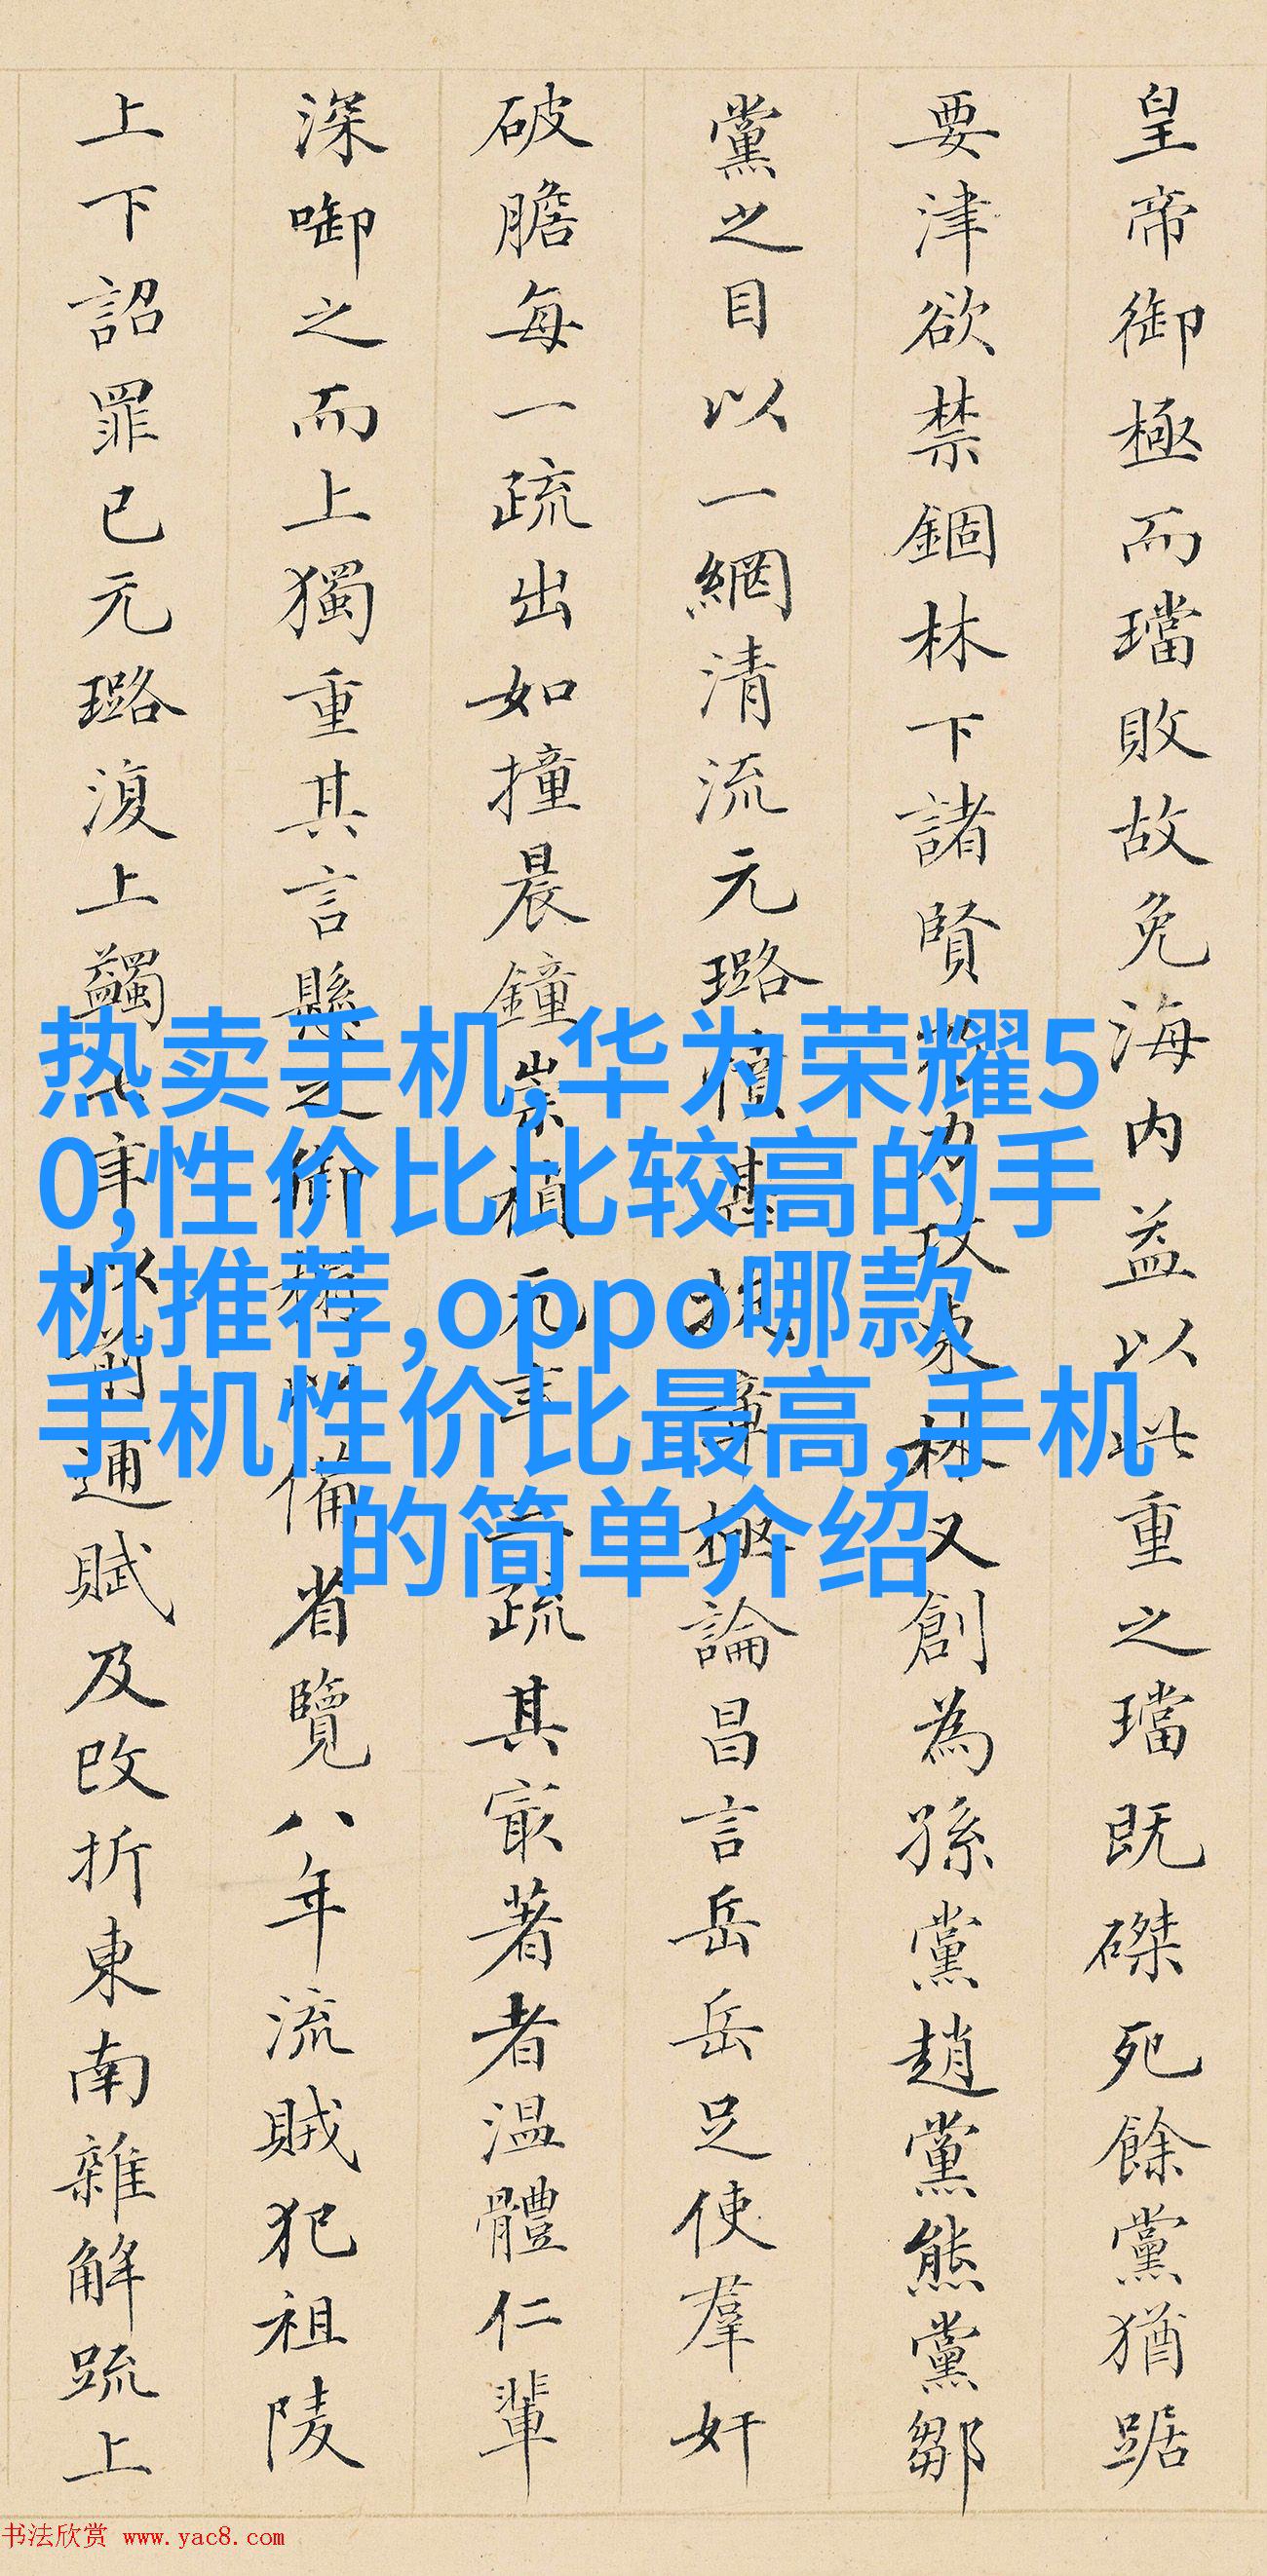 皇帝御極而璫敗故免海内益以此重之璫既磔死餘黨猶踞
要津欲禁錮林下諸賢力攻東林又創為孫黨趙黨熊黨鄒
黨之目以一網清流元璐憤甚抗章極論昌言岳岳足使羣奸
破膽每一疏出如撞晨鐘崇禎元年疏其冣著者温體仁輩
深啣之而上獨重其言縣之御以備省覽八年流賊犯祖陵
上下詔罪已元璐復上蠲年以前逋賦及改折東南雜解疏上
热卖手机,华为荣耀5
0,性价比比较高的手
机推荐,oppo哪款
手机性价比最高,手机
的简单介绍
书法欣赏 www.yac8.com